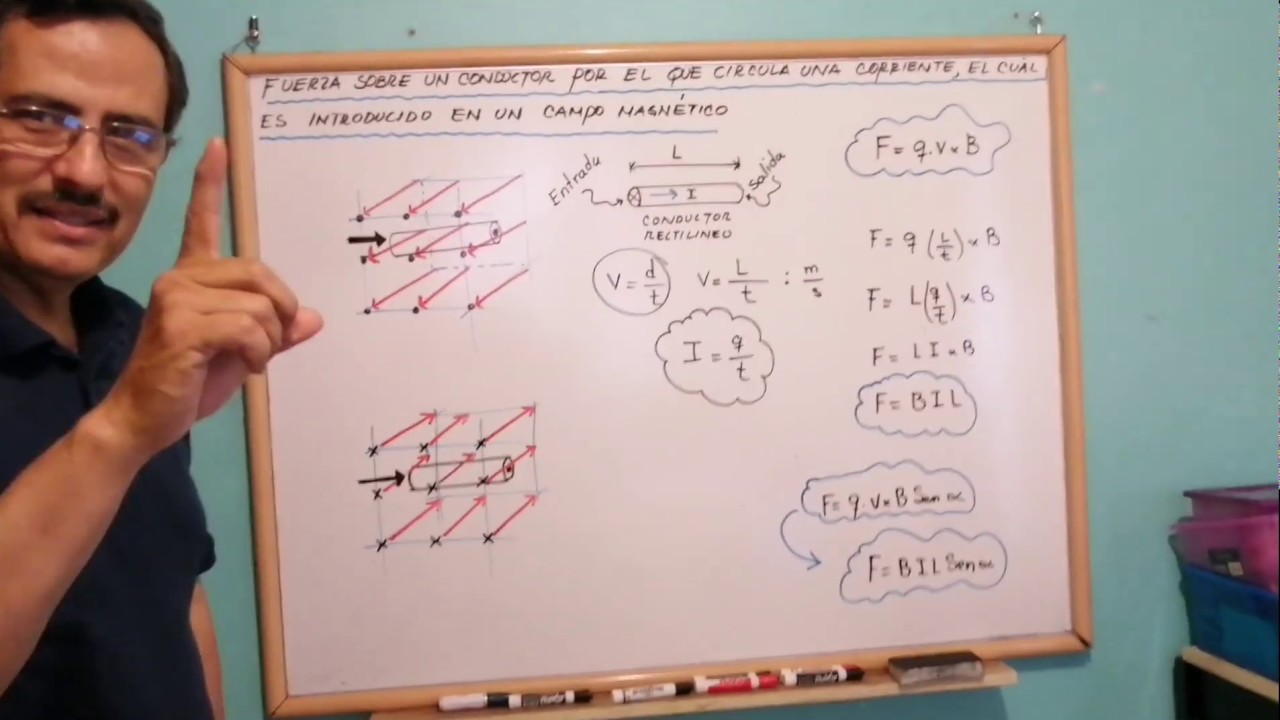 FUERZA SOBRE UN CONDUCTOR POR EL QUE CIRCULA UNA CORRIENTE, EL CUAL
ES INTRODUCIDO EN UN CAMPO MAGNÉTICO
L
Entrada
I
Salida
CONDUCTOR
RECTILINEO
V = d/t
V = L/t : m/s
I = q/t
F = q.v × B
F = q (L/t) × B
F = L (q/t) × B
F = L I × B
F = B I L
F = q.v×B Sen α
F = B I L Sen α